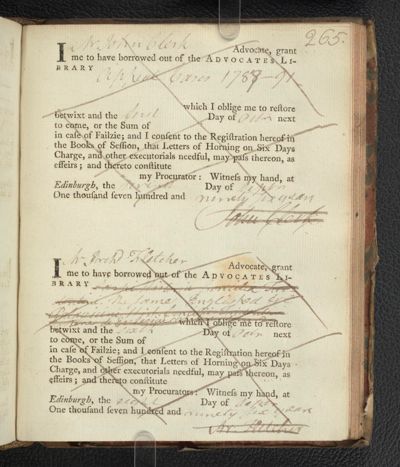 265.
I Mr John Clerk Advocate, grant
me to have borrowed out of the ADVOCATES LI-
BRARY Appeal Cases 17 - 91
which I oblige me to reſtore
betwixt and the firſt Day of next
to come, or the Sum of
in caſe of Failzie; and I conſent to the Regiſtration hereof in
the Books of Seſſion, that Letters of Horning on Six Days
Charge, and other executorials needful, may paſs thereon, as
effeirs; and thereto conſtitute
my Procurator: Witneſs my hand, at
Edinburgh, the Day of
One thouſand seven hundred and ninety six years
John Clerk
I Mr Archd Fletcher Advocate, grant
me to have borrowed out of the ADVOCATES LI-
BRARY
the same,
which I oblige me to reſtore
betwixt and the Day of next
to come, or the Sum of
in caſe of Failzie; and I conſent to the Regiſtration hereof in
the Books of Seſſion, that Letters of Horning on Six Days
Charge, and other executorials needful, may paſs thereon, as
effeirs; and thereto conſtitute
my Procurators: Witneſs my hand, at
Edinburgh, the Day of
One thouſand seven hundred and ninety six years
Ar. Fletcher